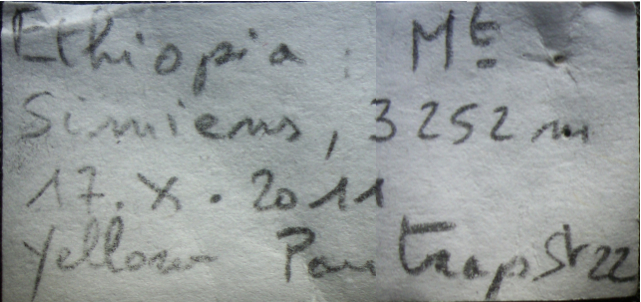 Ethiopia : Mt.
Simiens, 3252 m
17.X.2011
Yellow Pan trap St 22